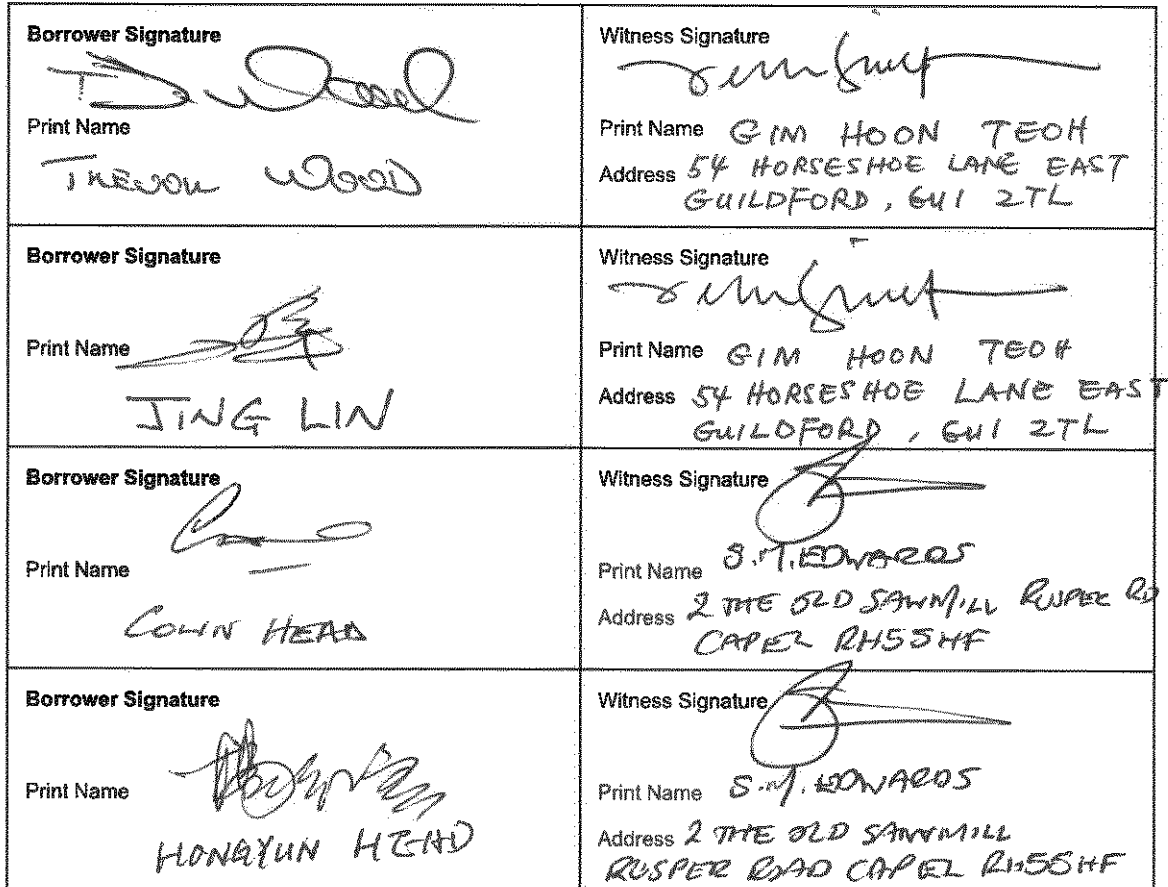 Borrower Signature
Print Name
TREVOR WOOD
Witness Signature
Print Name GIM HOON TEOH
Address 54 HORSESHOE LANE EAST
GUILDFORD, GU1 2TL
Borrower Signature
Print Name
JING LIN
Witness Signature
Print Name GIM HOON TEOH
Address 54 HORSESHOE LANE EAST
GUILDFORD, GU1 2TL
Borrower Signature
Print Name
COLIN HEAD
Witness Signature
Print Name S.M. EDWARDS
Address 2 THE OLD SAWMILL RUSPER RD
CAPEL RH5 5HF
Borrower Signature
Print Name
HONGYUN HEAD
Witness Signature
Print Name S.M. EDWARDS
Address 2 THE OLD SAWMILL
RUSPER ROAD CAPEL RH5 5HF